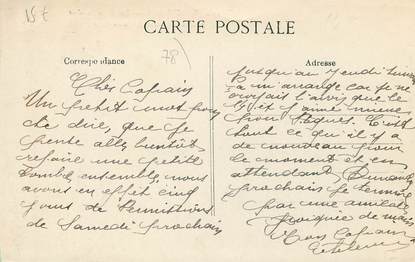 15 t
CARTE POSTALE
Correspondance
78
Adresse
Cher Copain
Un petit mot pour
te dire, que je
pense aller bientôt
refaire une petite
bombe ensemble, nous
avons en effet cinq
jours de Permissions
de Samedi prochain
jusqu'au Jeudi
m'arrange car je ne
que le
j'aime mieux
pour Pâques. C'est
tout ce qu'il y a
de nouveau pour
le moment et en
attendant Dimanche
prochain je termine
par une amicale
poignée de main
Ton Copain